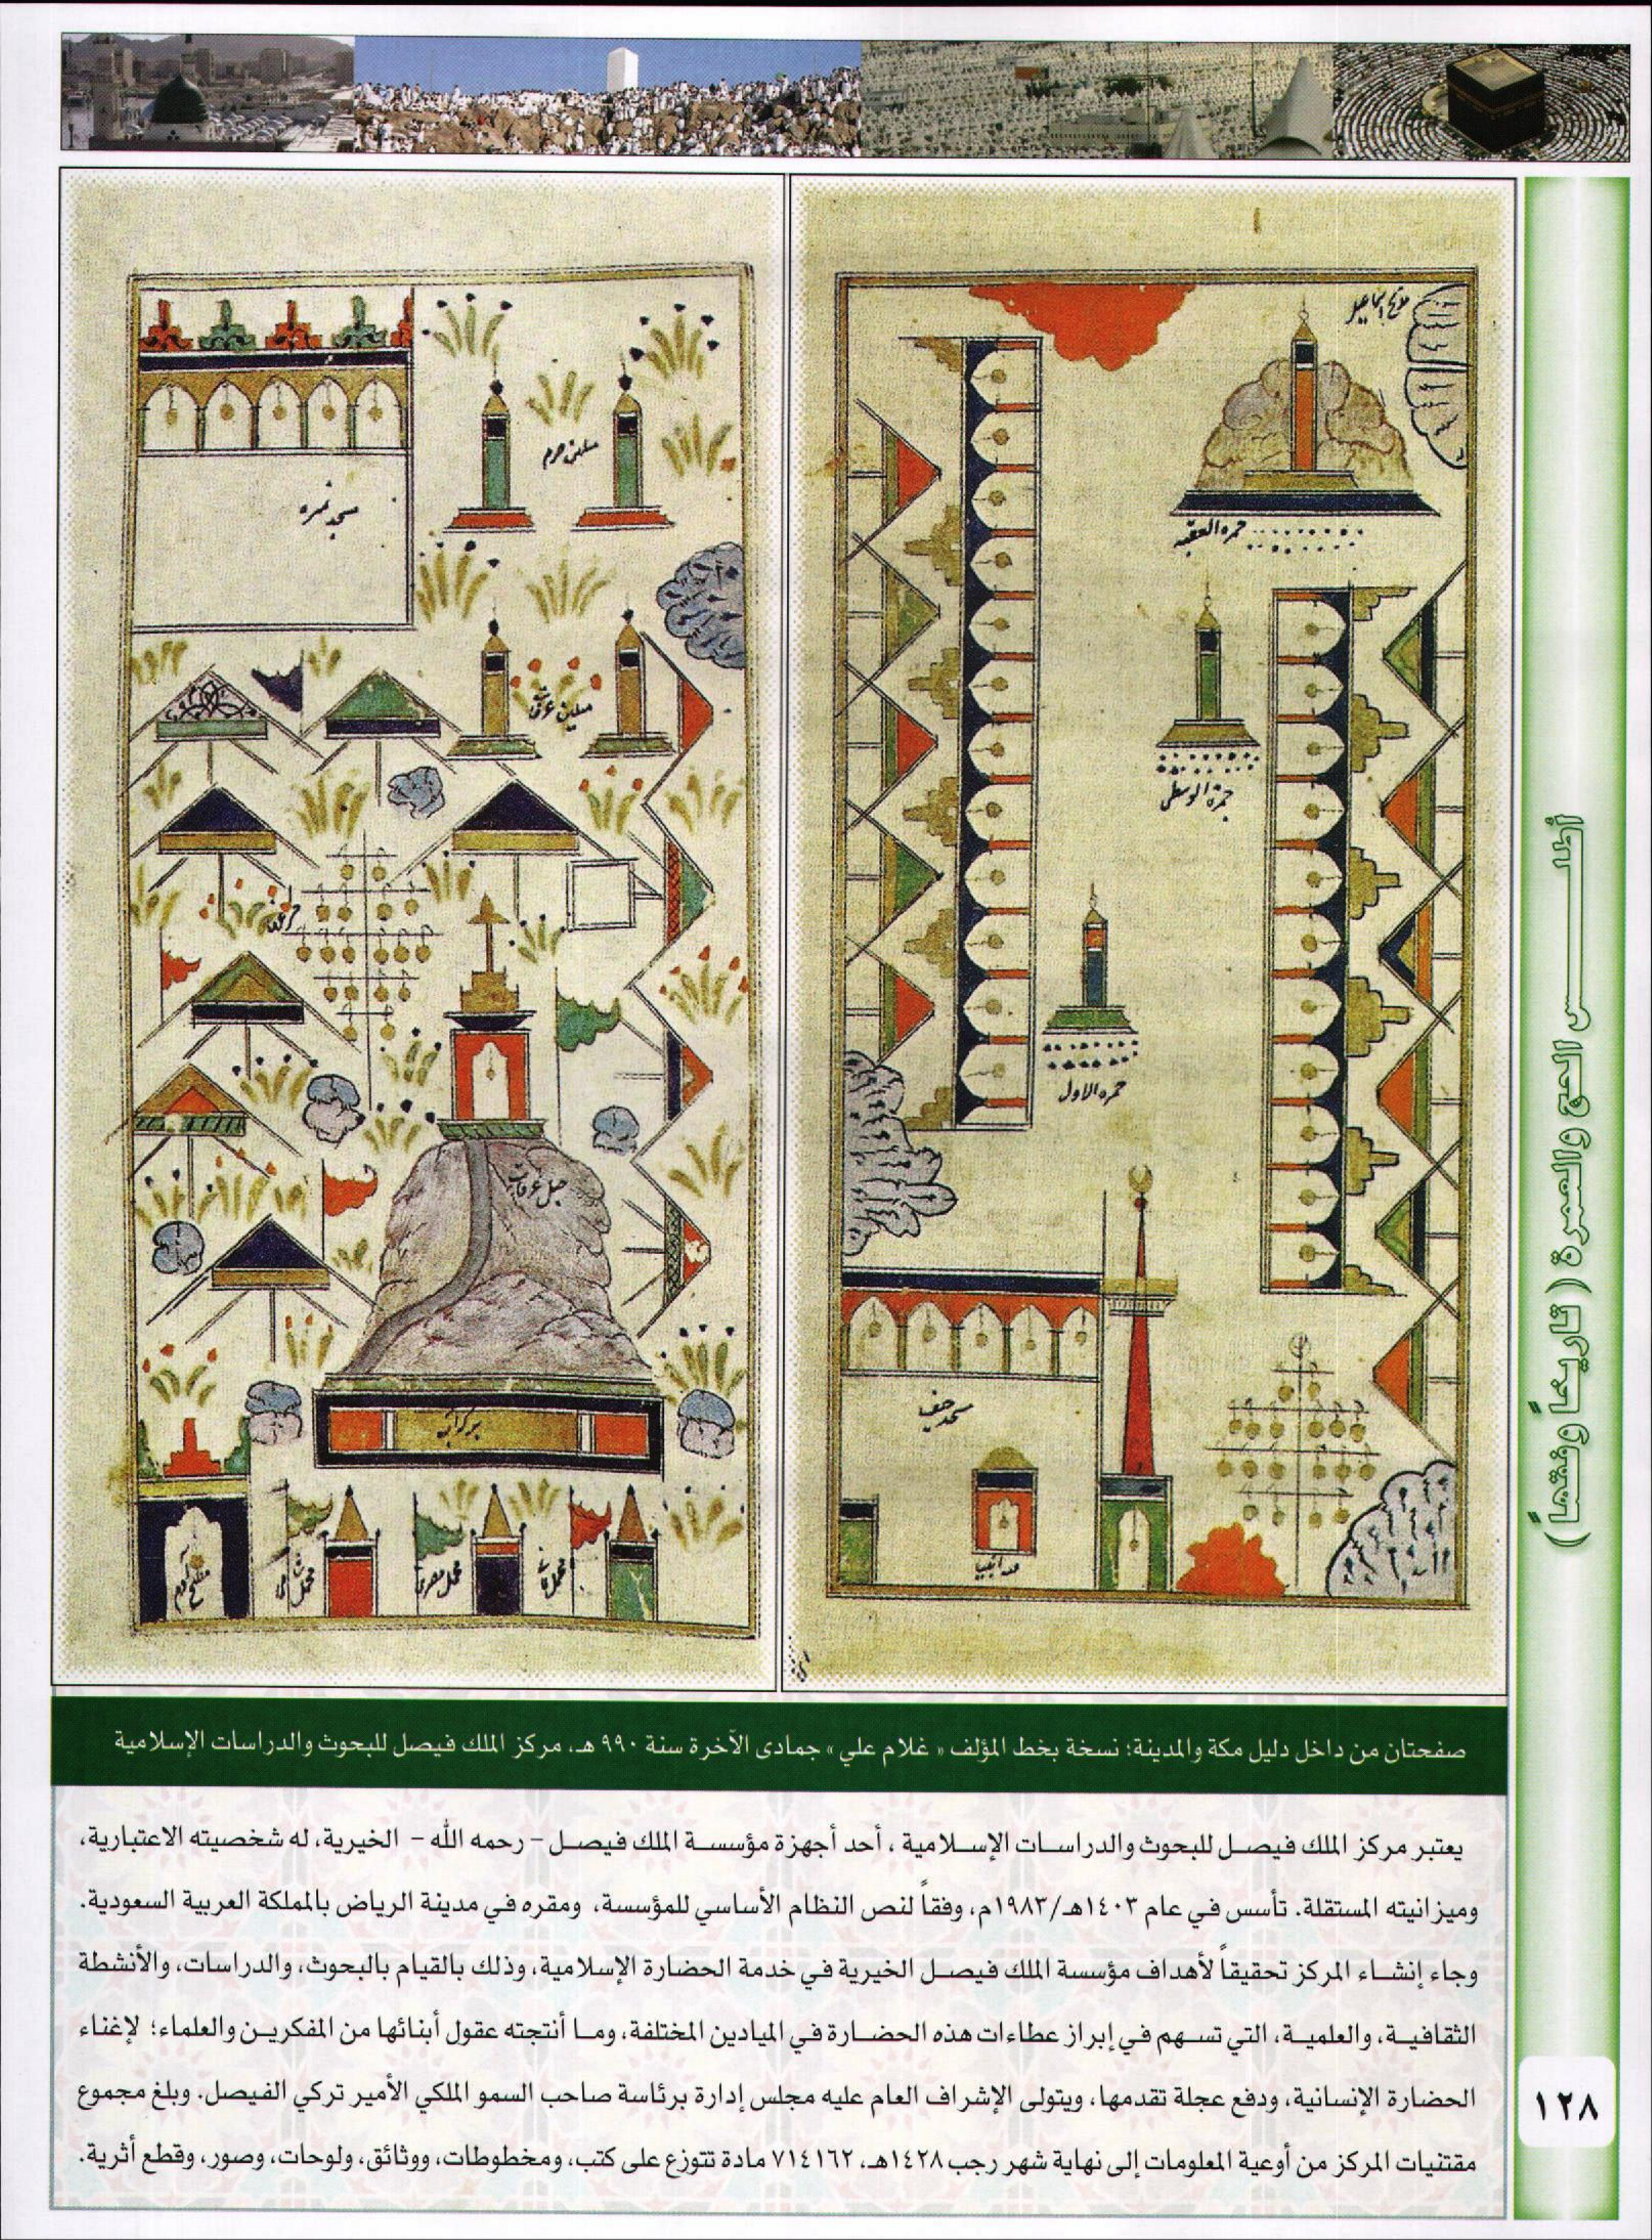 مذبح اسماعيل
جمره العقبه
جمرة الوسطى
جمره الاول
مسجد خيف
ميلين حرم
مسجد نمره
ميلين عرفات
جبل عرفات
محمل شامى
محمل مصرى
مطبخ آدم
صفحتان من داخل دليل مكة والمدينة؛ نسخة بخط المؤلف « غلام علي » جمادى الآخرة سنة ٩٩٠ هـ، مركز الملك فيصل للبحوث والدراسات الإسلامية
يعتبر مركز الملك فيصل للبحوث والدراسات الإسلامية ، أحد أجهزة مؤسسة الملك فيصل - رحمه الله - الخيرية، له شخصيته الاعتبارية،
وميزانيته المستقلة. تأسس في عام ١٤٠٣هـ/١٩٨٣م، وفقاً لنص النظام الأساسي للمؤسسة، ومقره في مدينة الرياض بالمملكة العربية السعودية.
وجاء إنشاء المركز تحقيقاً لأهداف مؤسسة الملك فيصل الخيرية في خدمة الحضارة الإسلامية، وذلك بالقيام بالبحوث، والدراسات، والأنشطة
الثقافية، والعلمية، التي تسهم في إبراز عطاءات هذه الحضارة في الميادين المختلفة، وما أنتجته عقول أبنائها من المفكرين والعلماء؛ لإغناء
الحضارة الإنسانية، ودفع عجلة تقدمها، ويتولى الإشراف العام عليه مجلس إدارة برئاسة صاحب السمو الملكي الأمير تركي الفيصل. وبلغ مجموع
مقتنيات المركز من أوعية المعلومات إلى نهاية شهر رجب ١٤٢٨هـ، ٧١٤١٦٢ مادة تتوزع على كتب، ومخطوطات، ووثائق، ولوحات، وصور، وقطع أثرية.
أطلس الحج والعمرة ( تاريخاً وفقهاً )
١٢٨